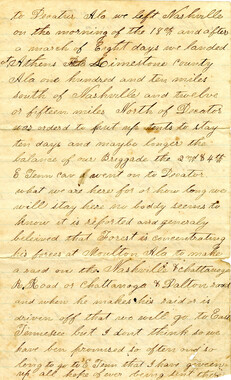 to Decatur Ala we left Nashville
on the morning of the 18th and after
a march of Eight days we landed
at Athens Limestone County
Ala one hundred and ten miles
south of Nashville and twelve
or fifteen miles North of Decator
was orderd to put up tents to stay
ten days and maybe longer the
balance of our Briggade the 2nd & 4th
E Tenn Cav went on to Decator
what we are here for or how long we
will stay here no boddy seems to
know it is reported and generaly
beleived that Forest is concentrating
his forces at Moulton Ala to make
a raid on the Nashville & Chattanooga
R. Road or Chattanoga & Dalton road
and when he makes his raid or is
driven off that we will go to East
Tennesee but I dont think so we
have been promised so often and so
long to go to E Tenn that I have given
up all hope of ever